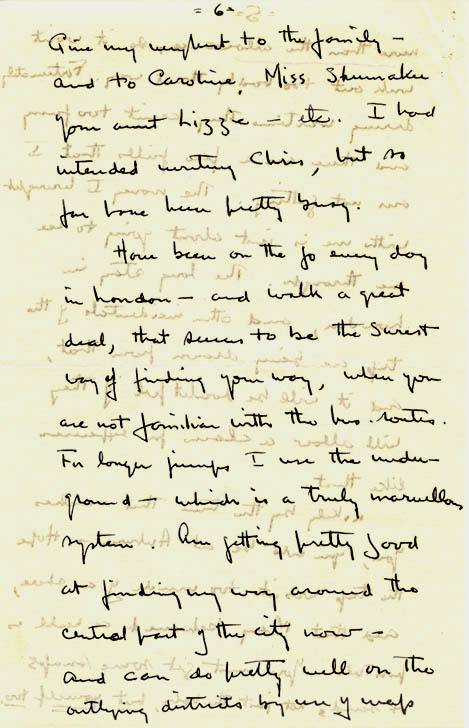 = 6 =
Give my respect to the family -
and to Caroline, Miss Shumaker
your aunt Lizzie - etc. I had
intended writing Chris, but so
far have been pretty busy.
Have been on the go every day
in London - and walk a great
deal, that seems to be the surest
way of finding your way, when you
are not familiar with the bus routes.
For longer jumps I use the under-
ground - which is a truly marvellous
system. Am getting pretty good
at finding my way around the
central part of the city now -
and can do pretty well on the
outlying districts by use of maps